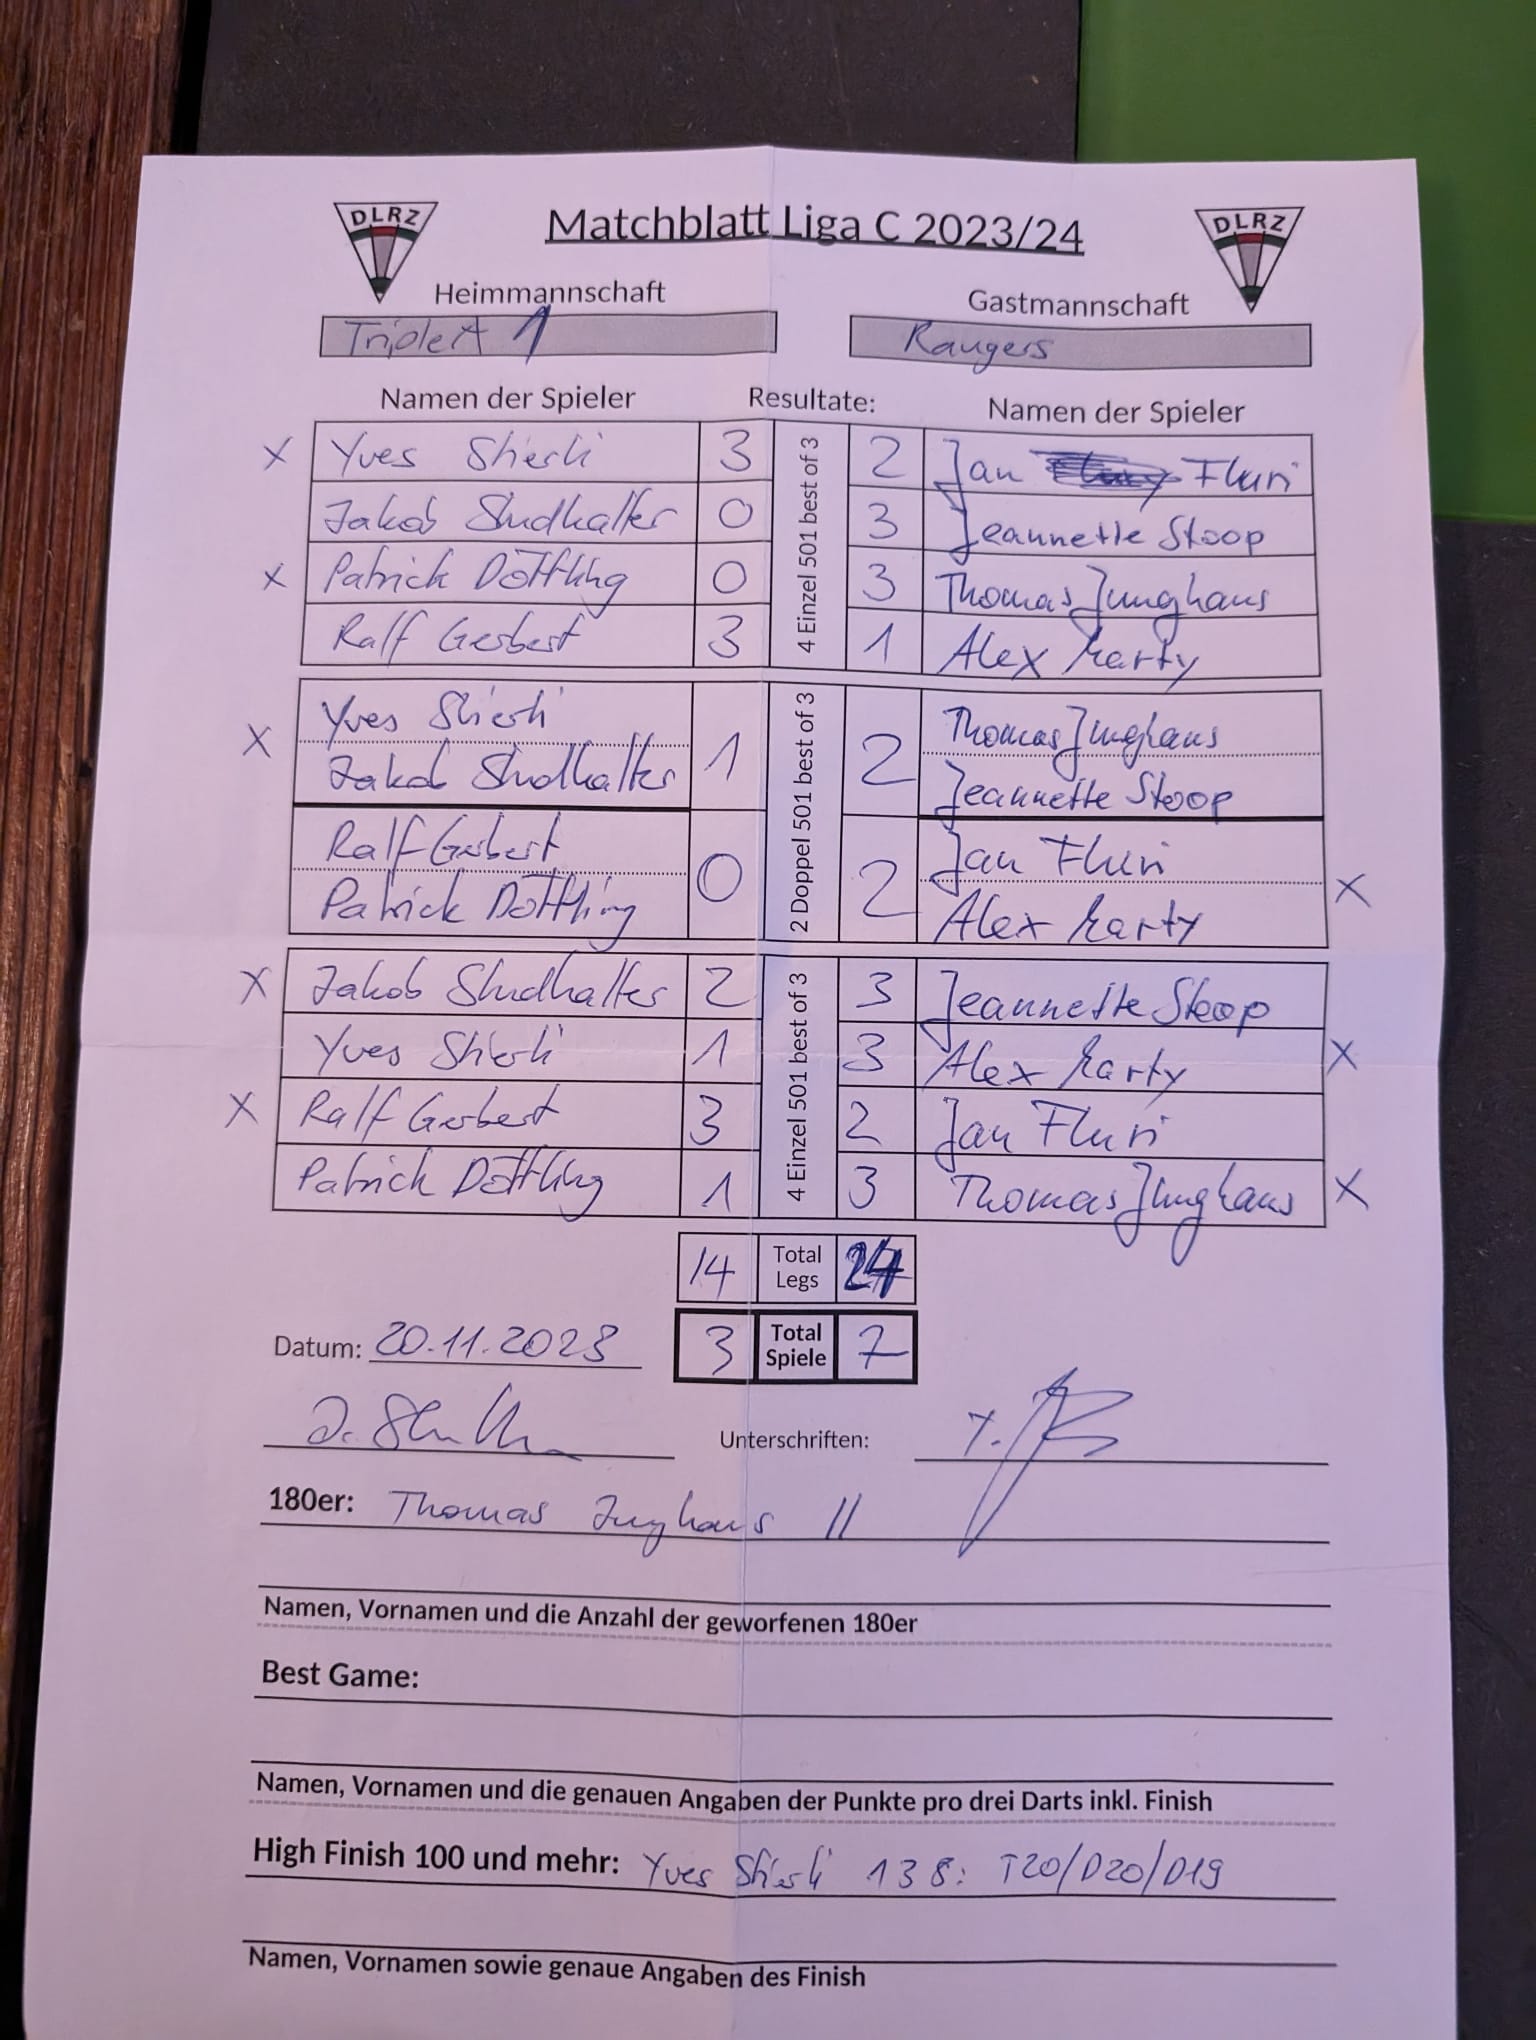 DLRZ Matchblatt Liga C 2023/24 DLRZ
Heimmannschaft Gastmannschaft
TripleA 1 Rangers
Namen der Spieler Resultate: Namen der Spieler
X Yves Stierli 3 2 Jan Fluri
Jakob Studhalter 0 3 Jeannette Stoop
X Patrick Döttling 0 3 Thomas Junghans
Ralf Gerbert 3 1 Alex Marty
4 Einzel 501 best of 3
X Yves Stierli 1 2 Thomas Junghans
Jakob Studhalter Jeannette Stoop
Ralf Gerbert 0 2 Jan Fluri X
Patrick Döttling Alex Marty
2 Doppel 501 best of 3
X Jakob Studhalter 2 3 Jeannette Stoop
Yves Stierli 1 3 Alex Marty X
X Ralf Gerbert 3 2 Jan Fluri
Patrick Döttling 1 3 Thomas Junghans X
4 Einzel 501 best of 3
14 Total Legs 24
Datum: 20.11.2023 3 Total Spiele 7
Unterschriften:
180er: Thomas Junghans II
Namen, Vornamen und die Anzahl der geworfenen 180er
Best Game:
Namen, Vornamen und die genauen Angaben der Punkte pro drei Darts inkl. Finish
High Finish 100 und mehr: Yves Stierli 138: T20/D20/D19
Namen, Vornamen sowie genaue Angaben des Finish